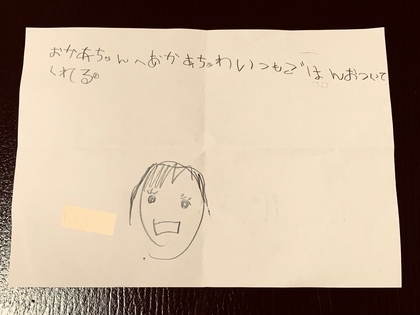 おかあちゃんへおかあちゃわいつもごはんおついて
くれる。